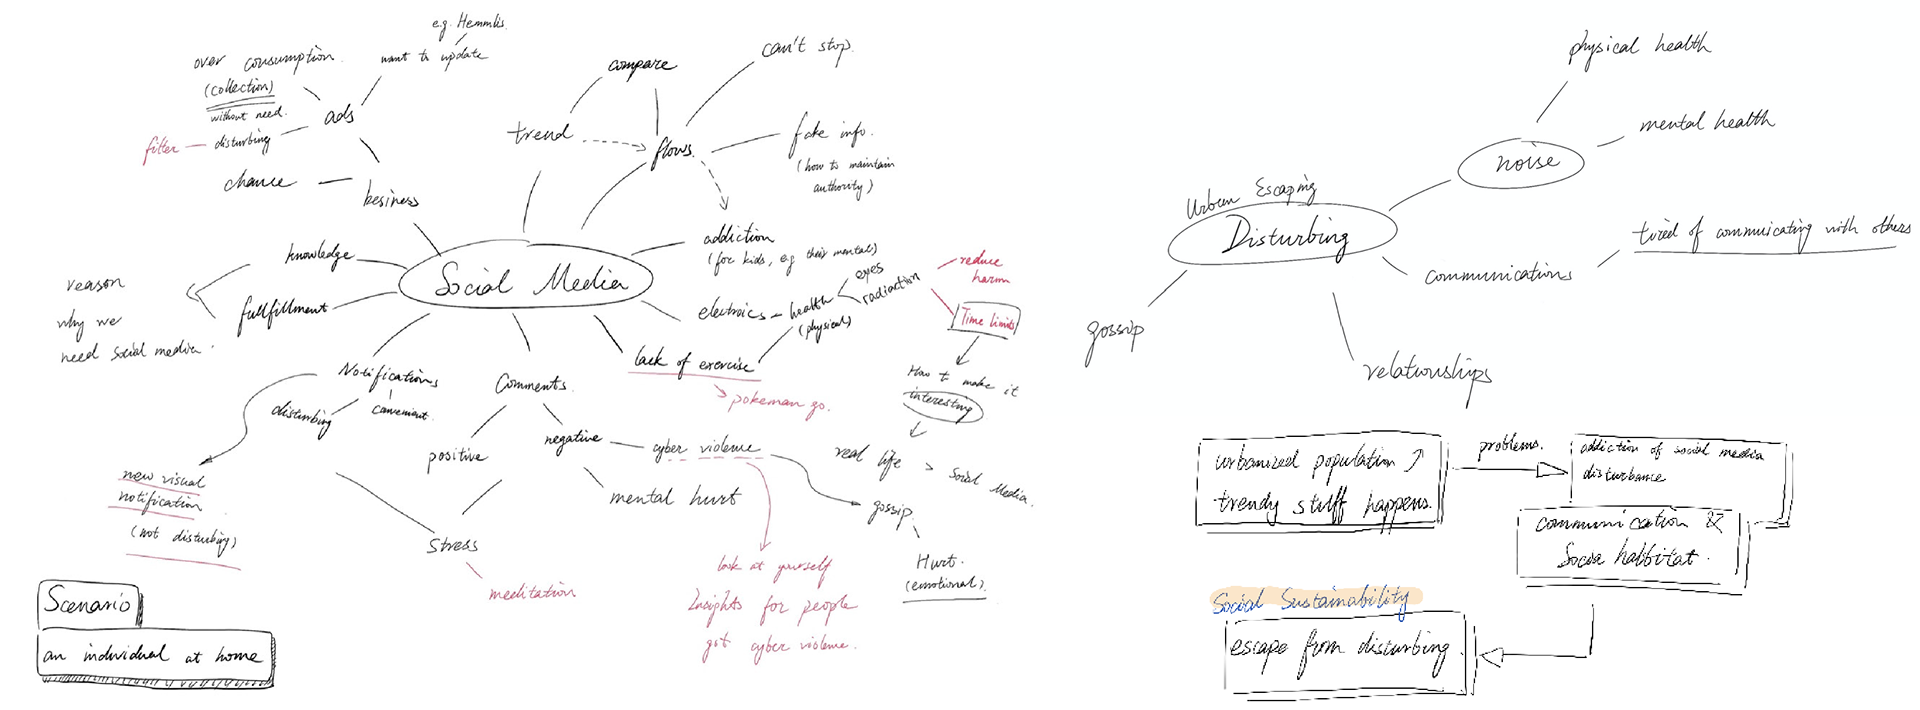 e.g. Hemmlis.
over consumption.
want to update
(collection)
without need.
ads
filter
disturbing
chance
besiness
compare
can't stop.
trend
flows.
fake info.
(how to maintain
authority)
knowledge
fullfillment
reason
why we
need social media.
Social Media
addiction
(for kids, e.g their mentals)
electroics
health
(physical)
eyes
radiaction
reduce
harm
Time limits
lack of exercise
pokeman go.
How to make it
interesting
real life > Social Media.
Notifications
disturbing
convenient.
new visual
notification
(not disturbing)
Comments.
positive
negative
cyber violence
mental hurt
gossip
Hurt.
(emotional).
Stress
meditation
look at yourself
Insights for people
got cyber violence.
Scenario
an individual at home
physical health
mental health
noise
Urban Escaping
Disturbing
tired of communicating with others
communications
gossip
relationships
urbanized population ↑
trendy stuff happens.
problems.
addiction of social media
disturbance
communication &
Socia habbitat.
Social Sustainability
escape from disturbing.